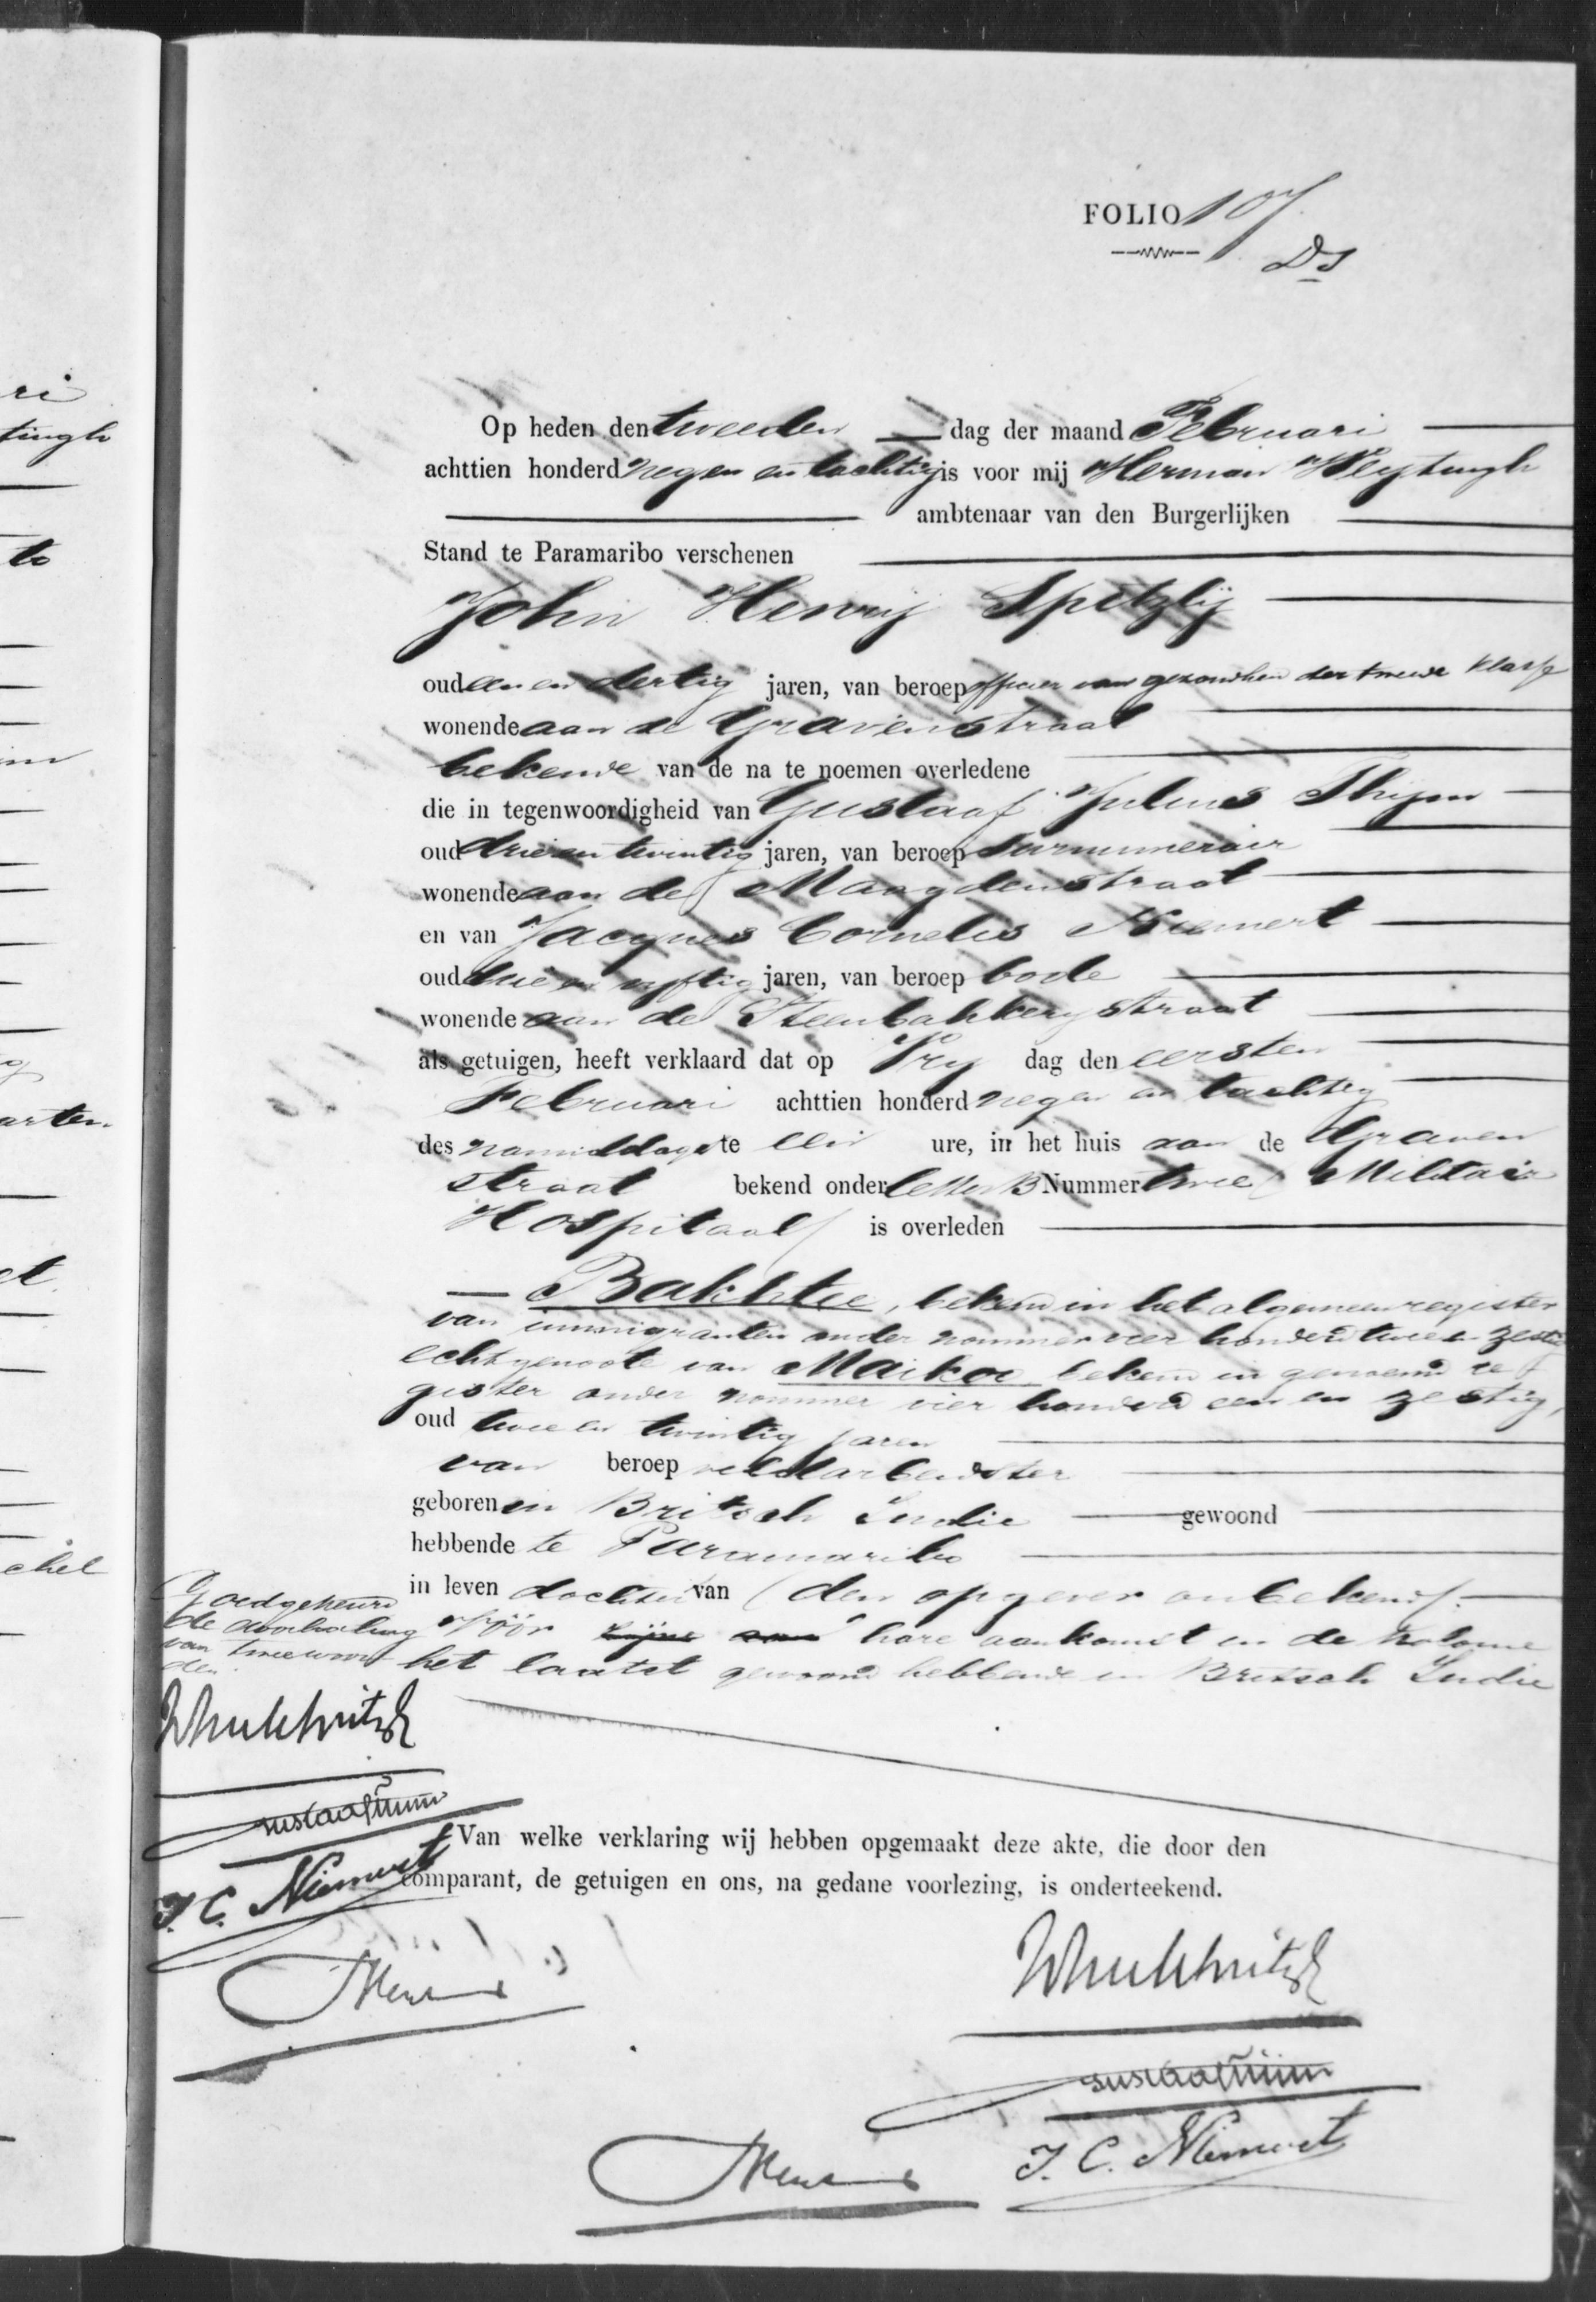 FOLIO 107
Ds
Op heden den tweeden dag der maand Februari
achttien honderd negen en tachtig is voor mij Herman Heytingh
ambtenaar van den Burgerlijken
Stand te Paramaribo verschenen
John Henrij Spitzlij
oud een en dertig jaren, van beroep officier van gezondheid der tweede klasse
wonende aan de Gravenstraat
bekende van de na te noemen overledene
die in tegenwoordigheid van Gustaaf Julius Thijm
oud drie en twintig jaren, van beroep surnumerair
wonende aan de Maagdenstraat
en van Jacques Cornelis Niemert
oud drie en vijftig jaren, van beroep bode
wonende aan de Steenbakkerystraat
als getuigen, heeft verklaard dat op Vry dag den eersten
Februari achttien honderd negen en tachtig
des namiddags te een ure, in het huis aan de Graven
straat bekend onder letter B Nummer twee (Militair
Hospitaal) is overleden
Bakhtee, bekend in het algemeen register
van immigranten onder nommer vier honderd twee en zestig
echtgenoote van Maikoe bekend in genoemd re
gister onder nommer vier honderd een en zestig,
oud twee en twintig jaren
van beroep veldarbeidster
geboren in Britsch Indie gewoond
hebbende te Paramaribo
in leven dochter van (den opgever onbekend).
Vóór zijne aan hare aankomst in de kolonie
het laatst gewoond hebbende in Britsch Indie
Goedgekeurd
de doorhaling
van twee woor
den.
J. C. Niemert
Van welke verklaring wij hebben opgemaakt deze akte, die door den
comparant, de getuigen en ons, na gedane voorlezing, is onderteekend.
J. C. Niemert
ri
tingh
te
g
arten
et.
chel